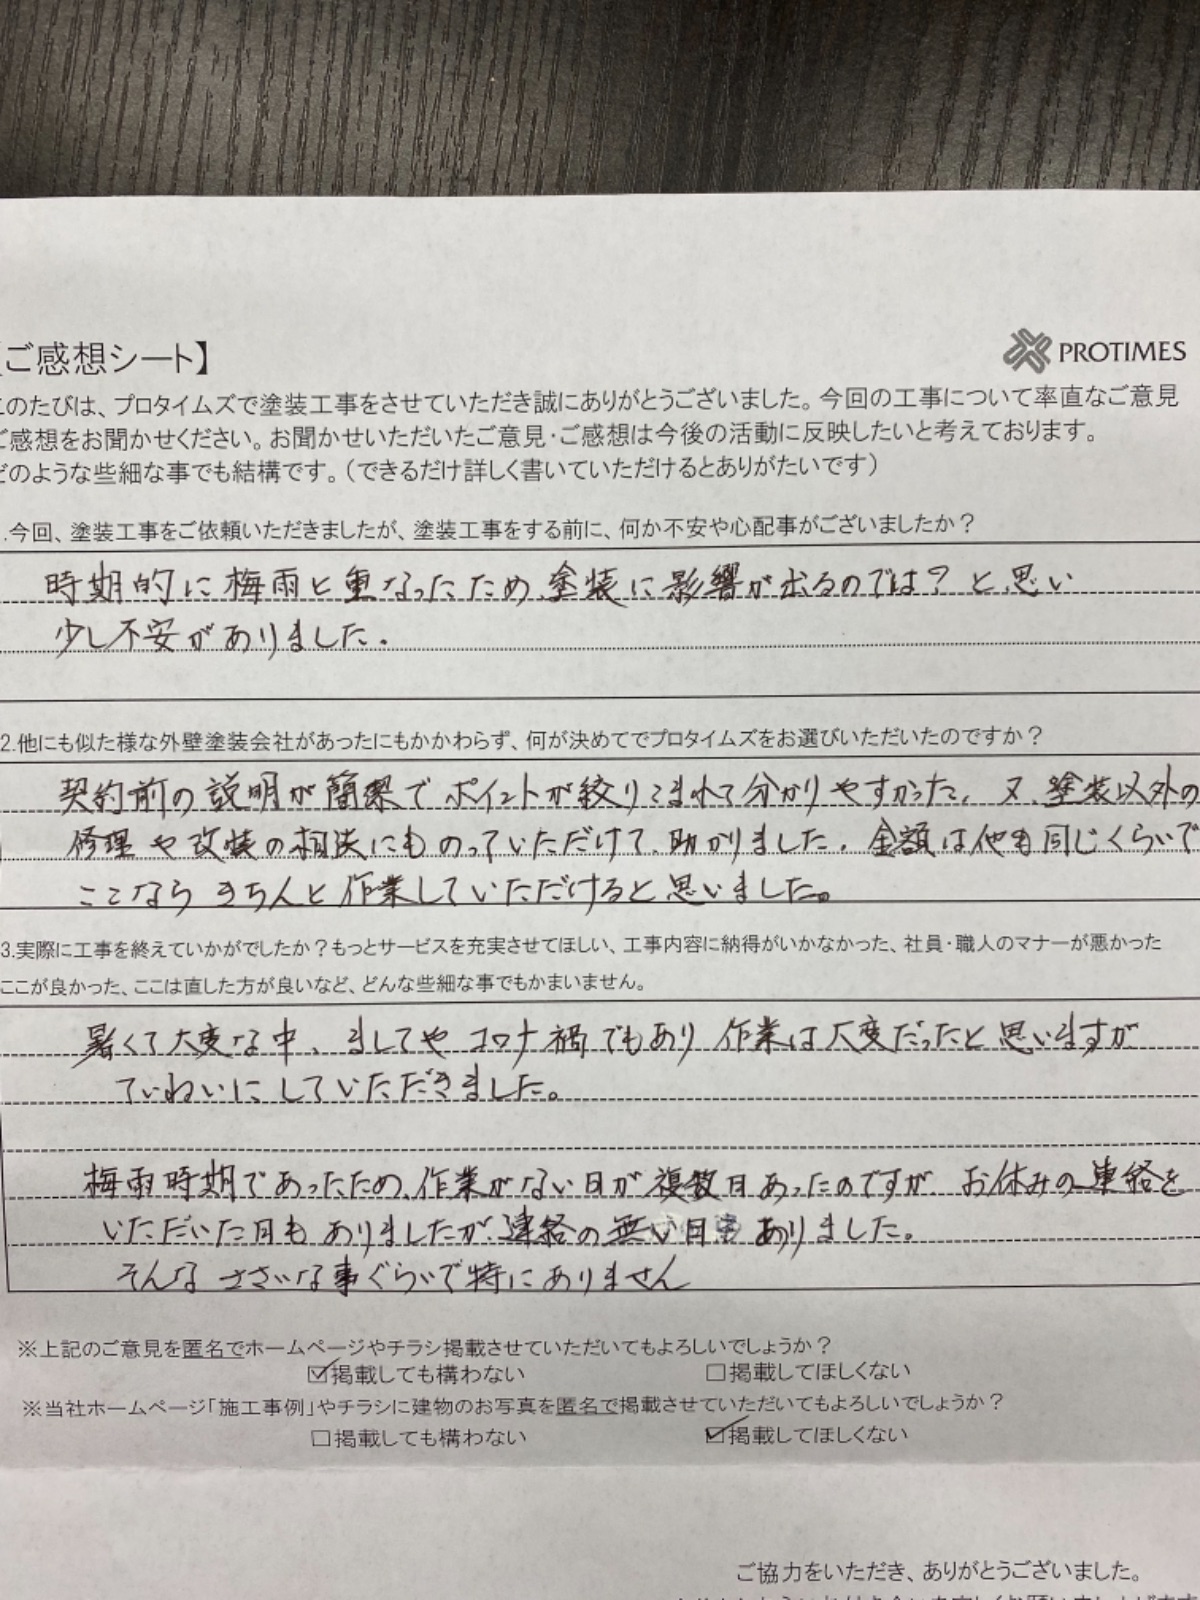 ご感想シート】
PROTIMES
このたびは、プロタイムズで塗装工事をさせていただき誠にありがとうございました。今回の工事について率直なご意見
ご感想をお聞かせください。お聞かせいただいたご意見・ご感想は今後の活動に反映したいと考えております。
どのような些細な事でも結構です。（できるだけ詳しく書いていただけるとありがたいです）
.今回、塗装工事をご依頼いただきましたが、塗装工事をする前に、何か不安や心配事がございましたか？
時期的に梅雨と重なったため、塗装に影響が出るのでは？と思い
少し不安がありました.
2.他にも似た様な外壁塗装会社があったにもかかわらず、何が決めてでプロタイムズをお選びいただいたのですか？
契約前の説明が簡潔でポイントが絞りこまれて分かりやすかった、又、塗装以外の
修理や改装の相談にものっていただけて、助かりました。金額は他も同じくらいで
ここならきちんと作業していただけると思いました。
3.実際に工事を終えていかがでしたか？もっとサービスを充実させてほしい、工事内容に納得がいかなかった、社員・職人のマナーが悪かった
ここが良かった、ここは直した方が良いなど、どんな些細な事でもかまいません。
暑くて大変な中、ましてやコロナ禍でもあり作業は大変だったと思いますが
ていねいにしていただきました。
梅雨時期であったため、作業がない日が複数日あったのですが、お休みの連絡を
いただいた日もありましたが、連絡の無い日もありました。
そんなささいな事ぐらいで特にありません
※上記のご意見を匿名でホームページやチラシ掲載させていただいてもよろしいでしょうか？
☑掲載しても構わない □掲載してほしくない
※当社ホームページ「施工事例」やチラシに建物のお写真を匿名で掲載させていただいてもよろしいでしょうか？
□掲載しても構わない ☑掲載してほしくない
ご協力をいただき、ありがとうございました。